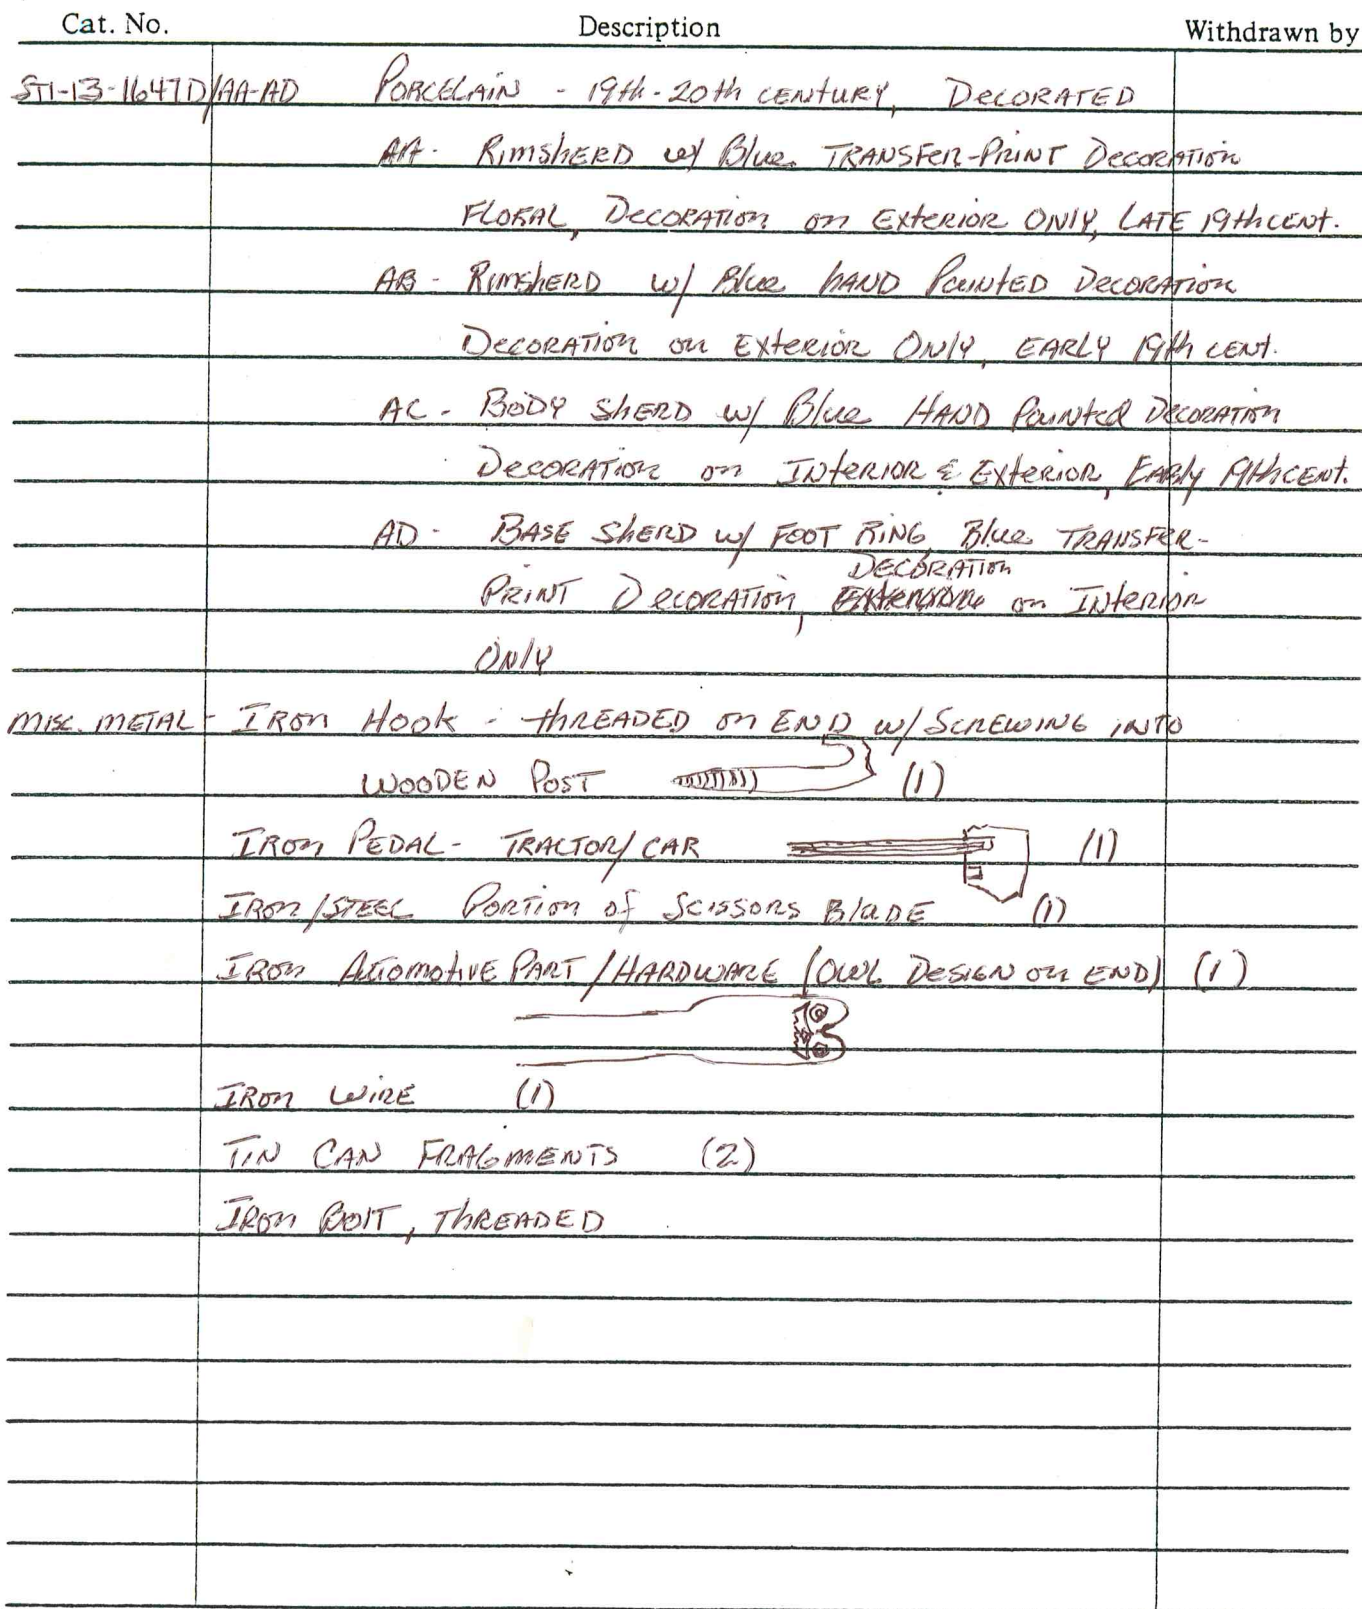 Cat. No. Description Withdrawn by
STI-13-1647D/AA-AD PORCELAIN - 19th-20th CENTURY, DECORATED
AA- RIMSHERD w/ Blue TRANSFER-PRINT DECORATION
FLORAL, DECORATION on EXTERIOR ONLY, LATE 19th CENT.
AB- RIMSHERD w/ Blue HAND PAINTED DECORATION
DECORATION on EXTERIOR ONLY, EARLY 19th CENT.
AC- BODY SHERD w/ Blue HAND PAINTED DECORATION
DECORATION on INTERIOR & EXTERIOR, EARLY 19th CENT.
AD- BASE SHERD w/ FOOT RING, Blue TRANSFER-
DECORATION
PRINT DECORATION, on INTERIOR
ONLY
MISC. METAL- IRON HOOK - THREADED on END w/ SCREWING INTO
WOODEN POST (1)
IRON PEDAL- TRACTOR/CAR (1)
IRON/STEEL PORTION of SCISSORS BLADE (1)
IRON AUTOMOTIVE PART/HARDWARE (OWL DESIGN on END) (1)
IRON WIRE (1)
TIN CAN FRAGMENTS (2)
IRON BOLT, THREADED